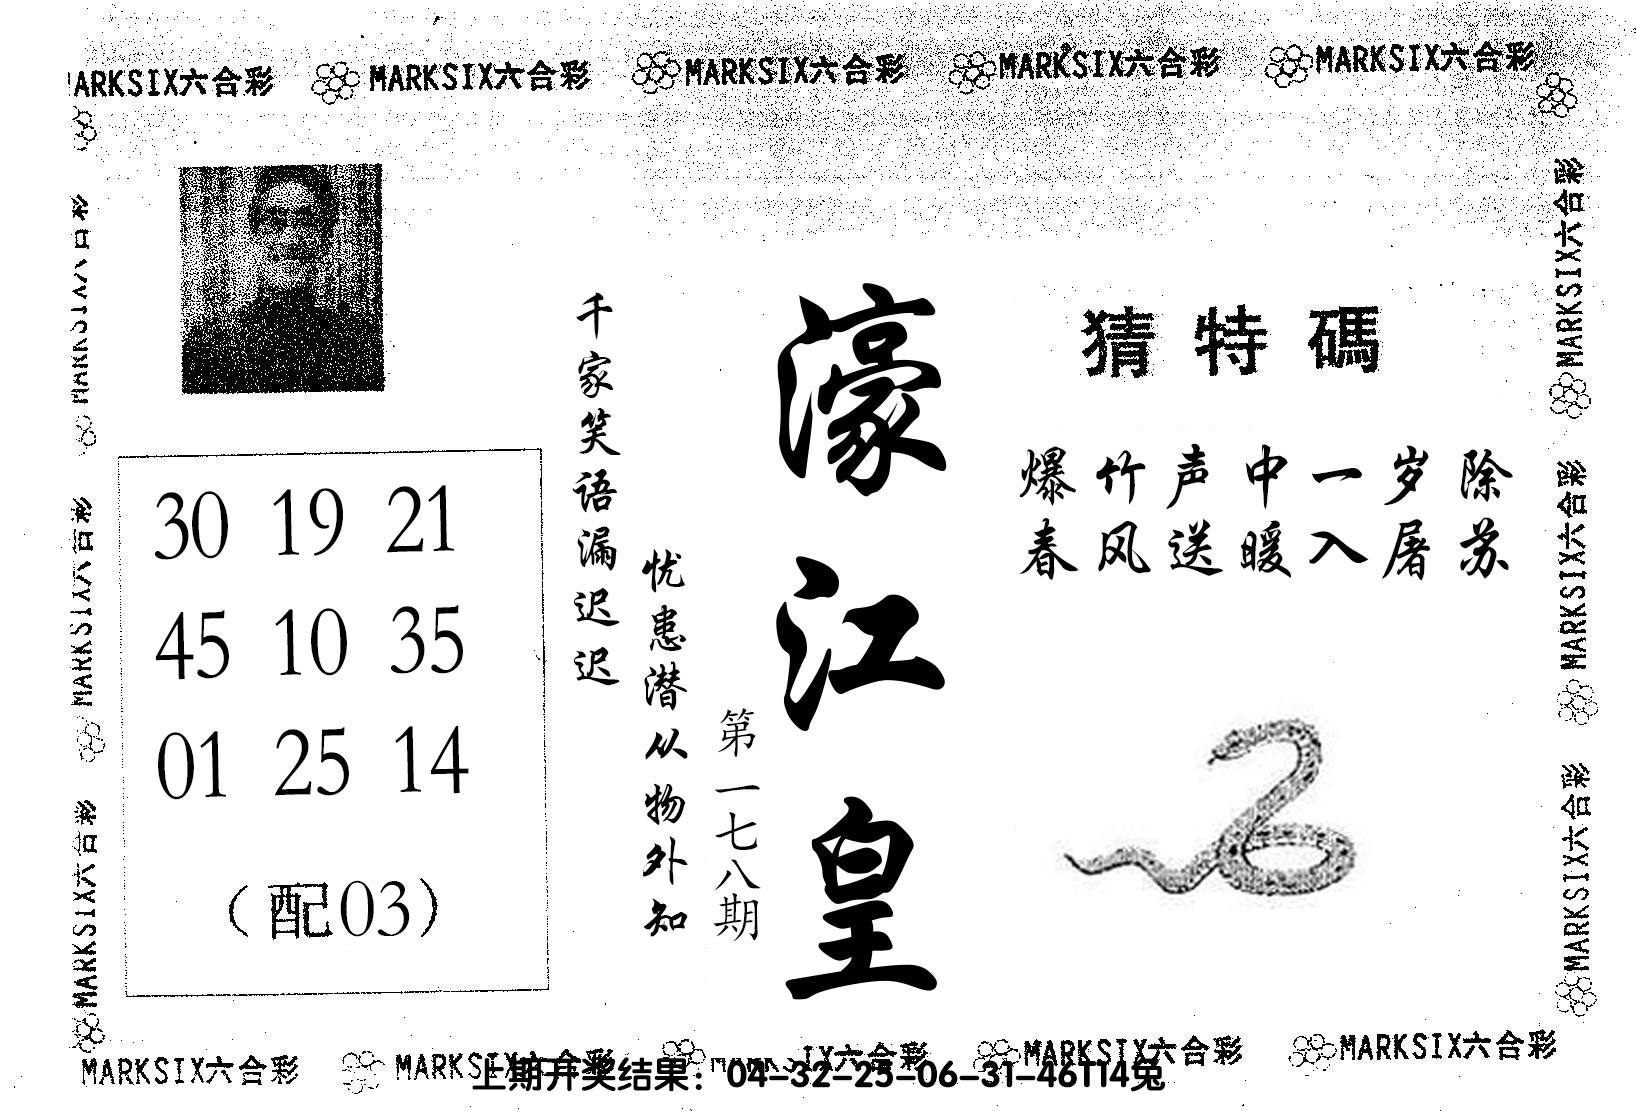 MARKSIX六合彩 MARKSIX六合彩 MARKSIX六合彩 MARKSIX六合彩 MARKSIX六合彩
MARKSIX六合彩
MARKSIX六合彩
MARKSIX六合彩
猜特碼
爆竹声中一岁除
春风送暖入屠苏
濠江皇
第一七八期
千家笑语漏迟迟
忧患潜从物外知
30 19 21
45 10 35
01 25 14
（配03）
MARKSIX六合彩
MARKSIX六合彩
MARKSIX六合彩
MARKSIX六合彩 MARKSIX六合彩 MARKSIX六合彩 MARKSIX六合彩
上期开奖结果：04-32-25-06-31-46T14兔